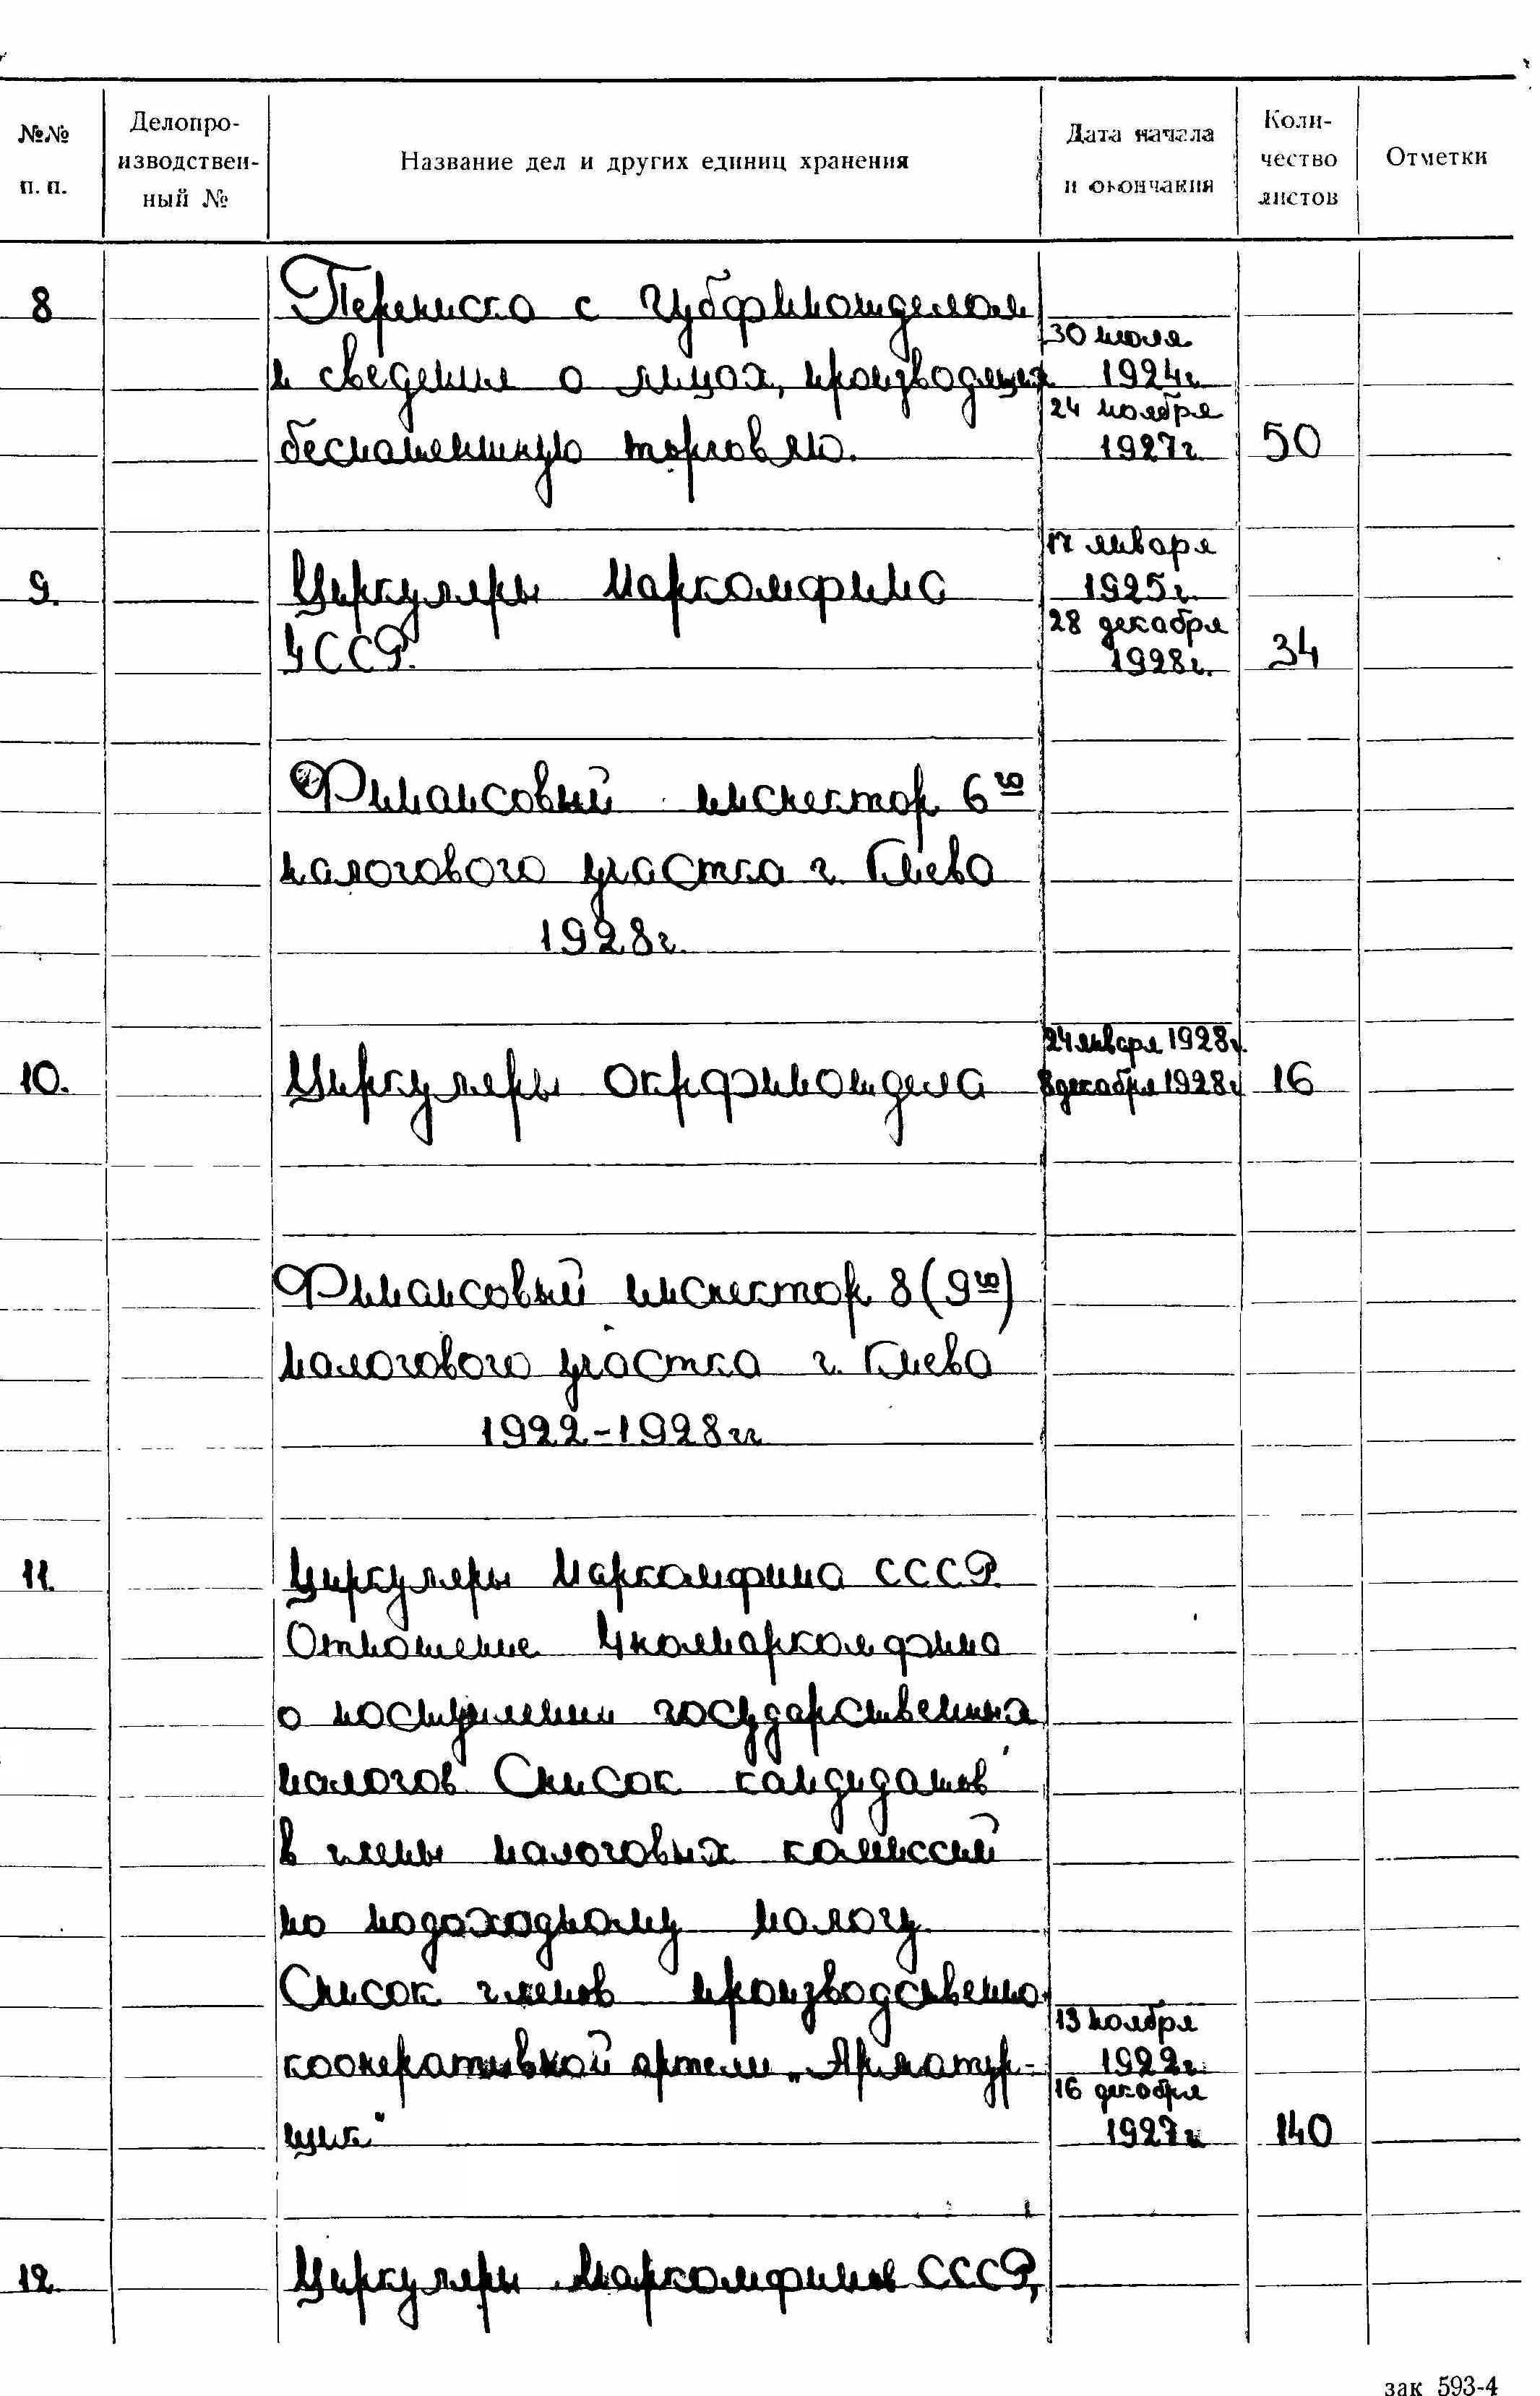 №№ п. п.
Делопроизводствен-ный №
Название дел и других единиц хранения
Дата начала и окончания
Коли-чество листов
Отметки
8 Переписка с губфинотделом
30 июля
и сведения о лицах, производящих 1924г.
24 ноября
беспатентную торговлю. 1927г. 50
17 января
9. Циркуляры Наркомфина 1925г.
28 декабря
УССР. 1928г. 34
Финансовый инспектор 6го
налогового участка г. Киева
1928г.
24 января 1928г.
10. Циркуляры Окрфинотдела 8 декабря 1928г 16
Финансовый инспектор 8 (9го)
налогового участка г. Киева
1922-1928гг
11. Циркуляры Наркомфина СССР.
Отношение Уполнаркомфина
о поступлении государственных
налогов. Список кандидатов
в члены налоговых комиссий
по подоходному налогу.
Список членов производственно-
13 ноября
кооперативной артели „Арматур- 1922г.
16 декабря
щик" 1927г. 140
12. Циркуляры Наркомфинов СССР,
зак 593-4